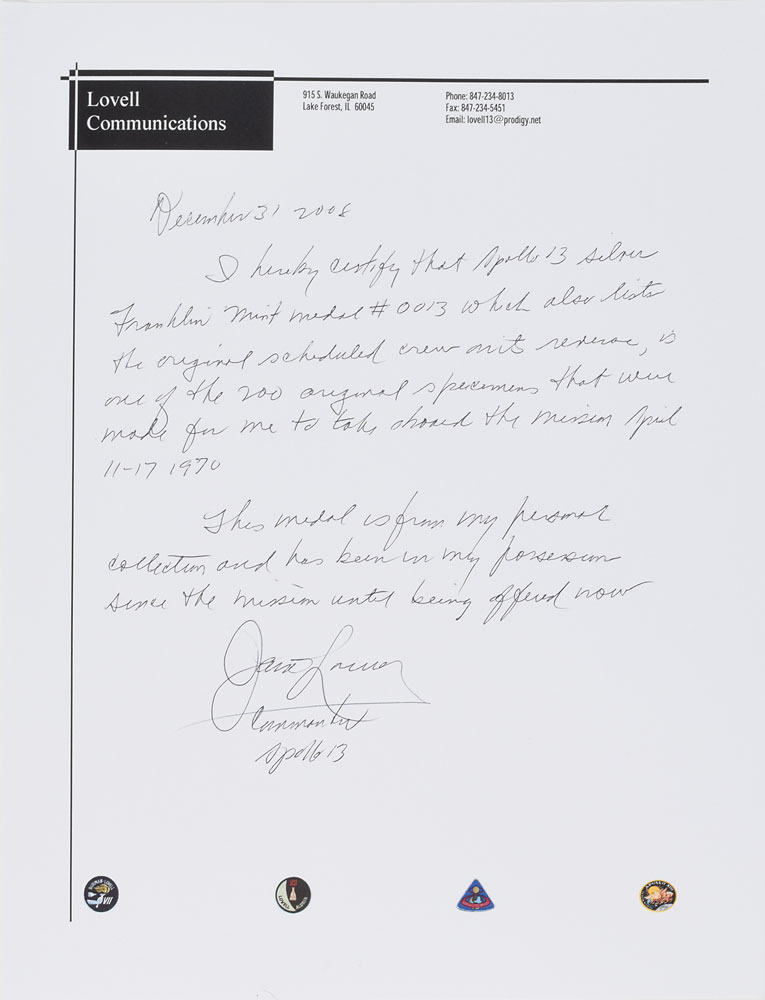 Lovell
Communications
915 S. Waukegan Road
Lake Forest, IL 60045
Phone: 847-234-8013
Fax: 847-234-5451
Email: lovell13@prodigy.net
December 31 2008
I hereby certify that Apollo 13 silver
Franklin Mint medal # 0013 which also lists
the original scheduled crew on its reverse, is
one of the 200 original specimens that were
made for me to take aboard the mission April
11-17 1970
This medal is from my personal
collection and has been in my possession
since the mission until being offered now
James Lovell
Commander
Apollo 13
VII